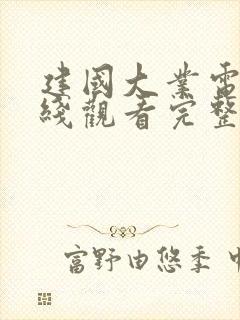 建國大業電
綫觀看完整
富野由悠季 中